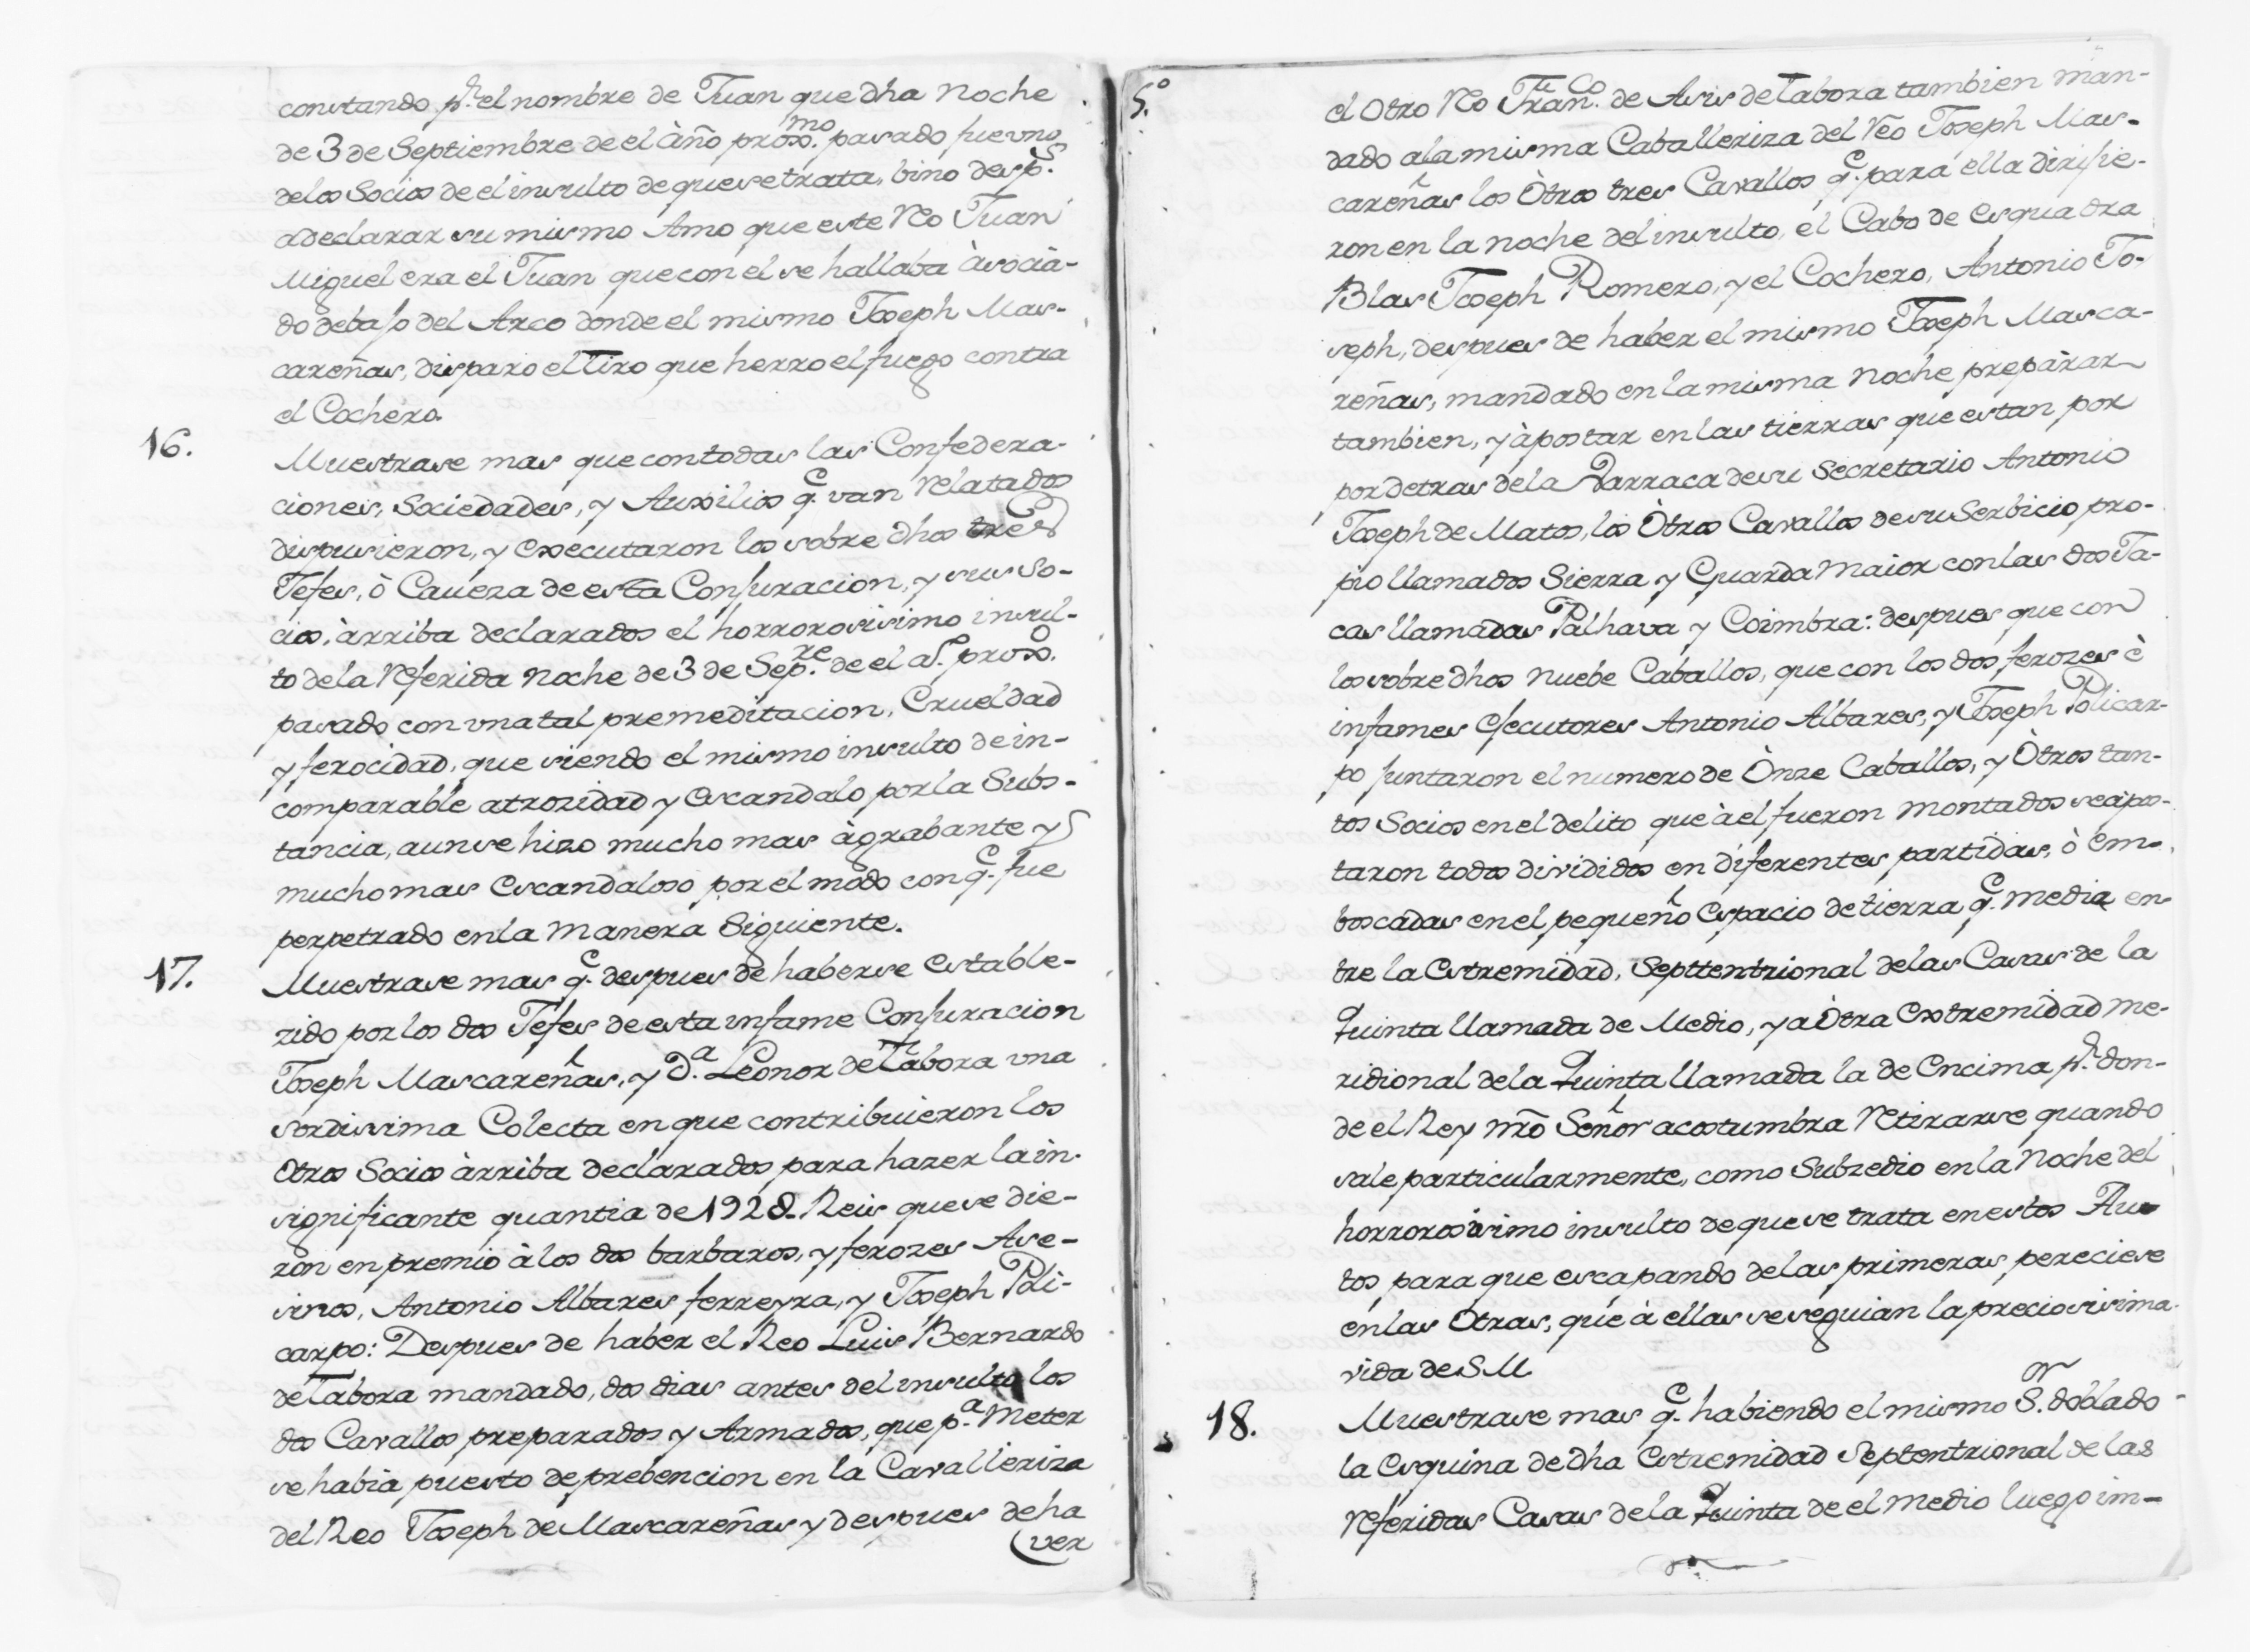 constando pr. el nombre de Juan que dha Noche
de 3 de Septiembre de el año proxmo. pasado fue uno
de los Socios de el insulto de que se trata, bino desps.
a declarar su mismo Amo que este Reo Juan
Miguel era el Juan que con el se hallaba àsociā-
do debajo del Arco donde el mismo Joseph Mas-
careñas, disparo el Tiro que herro el fuego contra
el Cochero.
16. Muestrase mas que con todas las Confedera-
ciones, Sociedades, y Auxilios q.e van Relatados
dispusieron, y executaron los sobre dhos tres
Jefes, ò Caveza de esta Conjuracion, y sus so-
cios, àrriba declarados el horrorosisimo insul-
to de la Referida Noche de 3 de Sep.re de el a.o proxo.
pasado con una tal premeditacion, Crueldad
y ferocidad, que siendo el mismo insulto de in-
comparable atrozidad y escandalo por la Subs-
tancia, aun se hizo mucho mas àgrabante y
mucho mas escandaloso por el modo con q.e fue
perpetrado en la Manera Siguiente.
17. Muestrase mas q.e despues de haberse estable-
zido por los dos Jefes de esta infame Conjuracion
Joseph Mascareñas, y D.a Leonor de Tabora una
sordissima Colecta en que contribuieron los
Otros Socios àrriba declarados para hazer la in-
significante quantia de 1928_Reis que se die-
ron en premio à los dos barbaros, y ferozes Ase-
sinos, Antonio Albares ferreyra, y Joseph Poli-
carpo: Despues de haber el Reo Luis Bernardo
de Tabora mandado, dos dias antes del insulto los
dos Cavallos preparados y Armados, que p.a Meter
se habia puesto de prebencion en la Cavalleriza
del Reo Joseph de Mascareñas y despues de ha
(ver
5.o el Otro Reo Fran.co de Asis de Tabora tambien man-
dado a la misma Caballeriza del Reo Joseph Mas-
careñas los Òtros tres Cavallos q.e para ella dirijie-
ron en la noche del insulto, el Cabo de esquadra
Blas Joseph Romero, y el Cochero, Antonio Jo-
seph, despues de haber el mismo Joseph Masca-
reñas, mandado en la misma Noche prepàrar
tambien, y àpostar en las tierras que estan por
por detras de la Barraca de su Secretario Antonio
Joseph de Matos, los Òtros Cavallos de su Serbicio pro-
pio llamados Sierra y Guarda Maior con las dos Ja-
cas llamadas Palhava y Coimbra: despues que con
los sobre dhos Nuebe Caballos, que con los dos ferozes è
infames ejecutores Antonio Albares, y Joseph Policar-
po juntaron el numero de Ònze Caballos, y Òtros tan-
tos Socios en el delito que à el fueron Montados se àpos-
taron todos divididos en diferentes partidas, ò em-
boscadas en el pequeño espacio de tierra q.e media en-
tre la estremidad, Septtentrional de las Casas de la
Quinta llamada de Medio, y a Òtra extremidad me-
ridional de la Quinta llamada la de Encima pr. don-
de el Rey nrō Señor acostumbra Retirarse quando
sale particularmente, como Subzedio en la Noche del
horrorosisimo insulto de que se trata en estos Au-
tos, para que escapando de las primeras, pereciese
en las Otras, que à ellas se seguian la preciosisima
vida de S M
18. Muestrase mas q.e habiendo el mismo S.or doblado
la esquina de dha estremidad Septentrional de las
Referidas Casas de la Quinta de el Medio luego im-